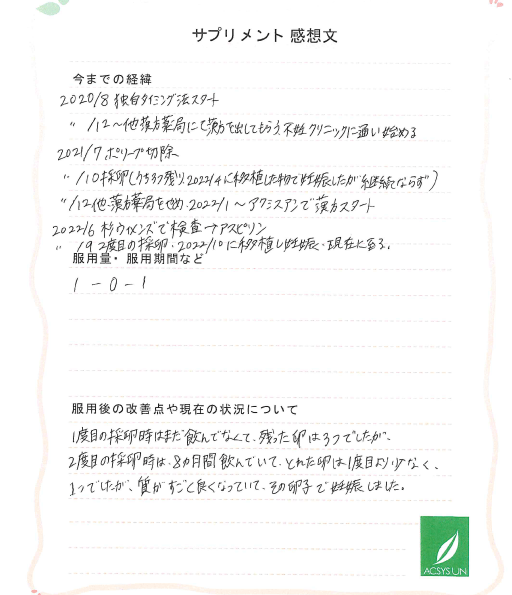 サプリメント 感想文
今までの経緯
2020/8 独自タイミング法スタート
〃 /12〜他漢方薬局にて漢方を出してもらう 不妊クリニックに通い始める
2021/7 ポリープ切除
〃 /10採卵(うち3つ残り、2022/4に移植した物で妊娠したが継続ならず)
〃 /12他漢方薬局をやめ、2022/1〜アクシスアンで漢方スタート
2022/6 杉ウィメンズで検査→アスピリン
〃 /9 2度目の採卵・2022/10に移植し妊娠・現在に至る。
服用量・服用期間など
1 - 0 - 1
服用後の改善点や現在の状況について
1度目の採卵時はまだ飲んでなくて、残った卵は3つでしたが、
2度目の採卵時は、8ヵ月間飲んでいて、とれた卵は1度目より少なく、
1つでしたが、質がすごく良くなっていて、その卵子で妊娠しました。
ACSYS UN